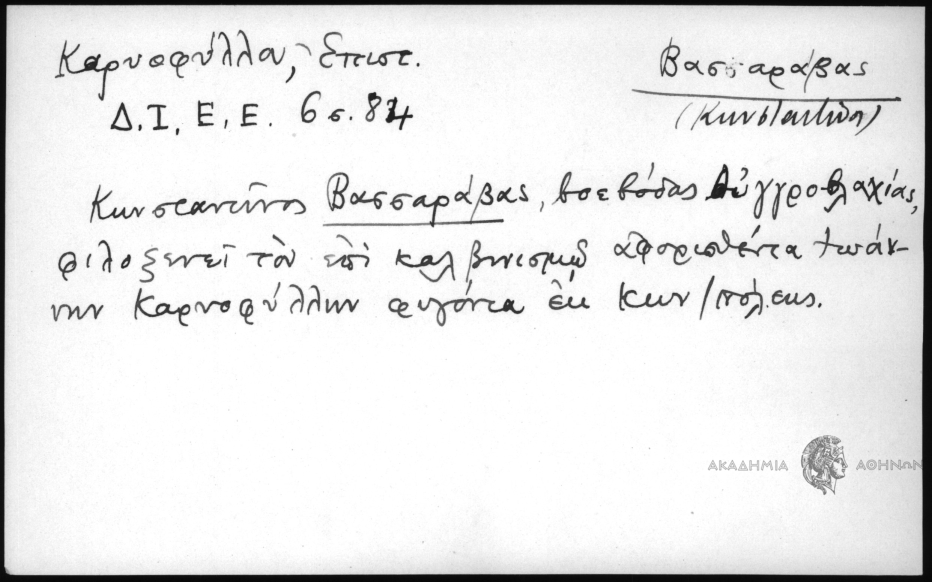 Καρυοφύλλου, Επιστ.
Βασσαράβας
Δ. Ι. Ε. Ε. 6 σ. 824
(Κωνσταντῖνος)
Κωνσταντῖνος Βασσαράβας, βοεβόδας Οὑγγροβλαχίας,
φιλοξενεῖ τὸν ἐπὶ καλβινισμῷ ἀφορισθέντα Ἰωάν-
νην Καρυοφύλλην φυγόντα ἐκ Κων/πόλεως.
ΑΚΑΔΗΜΙΑ ΑΘΗΝΩΝ